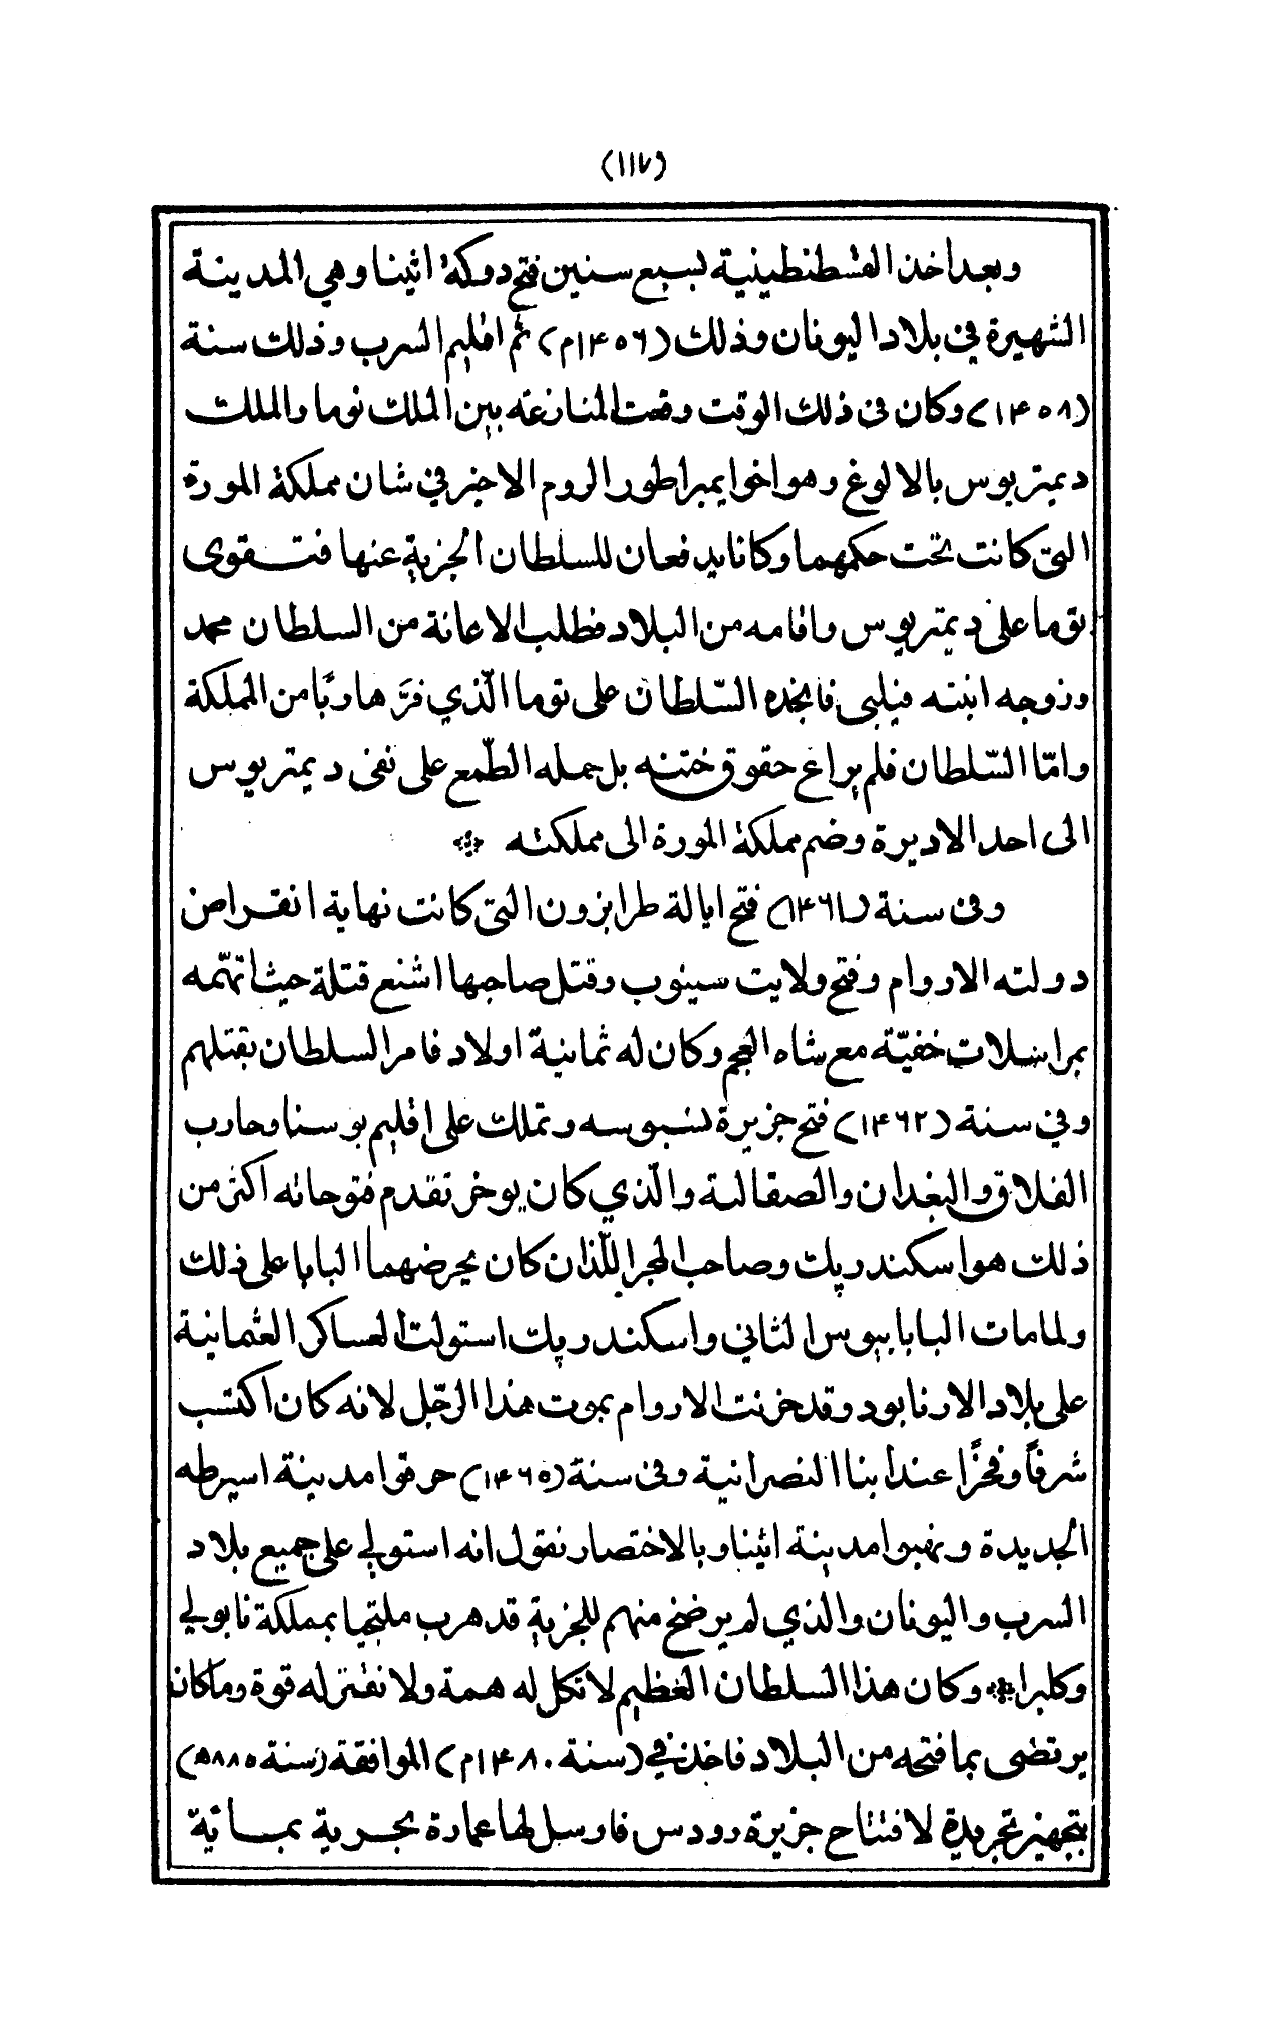 (١١٧)
وبعد اخذ القسطنطينية بسبع سنين فتح دوكة اثينا وهي المدينة
الشهيرة في بلاد اليونان وذلك (١۴٥٦م) ثم اقليم السرب وذلك سنة
(١۴٥٨) وكان في ذلك الوقت وقعت المنازعة بين الملك توما والملك
ديمتريوس بالالوغ وهو اخو ايمبراطور الروم الاخير في شان مملكة المورة
التي كانت تحت حكمهما وكانا يدفعان للسلطان الجزية عنها فتقوى
توما على ديمتريوس واقامه من البلاد فطلب الاعانة من السلطان محمد
وزوجه ابنته فيلبى فانجده السّلطان على توما الّذي فرَّ هاربًا من المملكة
وامّا السّلطان فلم يراع حقوق ختنه بل حمله الطّمع على نفى ديمتريوس
الى احد الاديرة وضم مملكة المورة الى مملكته
وفى سنة (١۴٦١) فتح ايالة طرابزون التى كانت نهاية انقراض
دولته الاروام وفتح ولايت سينوب وقتل صاحبها اشنع قتلة حيث اتهّمه
بمراسلات خفيّة مع شاه العجم وكان له ثمانية اولاد فامر السلطان بقتلهم
وفي سنة (١۴٦٢) فتح جزيرة لسبوسه وتملك على اقليم بوسنا وحارب
الفلاق والبغدان والصقالبة والّذي كان يوخر تقدم فتوحاته اكثر من
ذلك هو اسكندر بك وصاحب المجر اللّذان كان يحرضهما البابا على ذلك
ولمامات البابا بيوس الثاني واسكندر بك استولت العساكر العثمانية
على بلاد الارنابود وقد حزنت الاروام بموت هذا الرّجل لانه كان اكتسب
شرفاً وفخرًا عند ابنا النصرانية وفى سنة (١۴٦٥) حرقوا مدينة اسبرطه
الجديدة ونهبوا مدينة اثينا وبالاختصار نقول انه استولي على جميع بلاد
السرب واليونان والذي لم يرضخ منهم للجزية قد هرب ملتجيا بمملكة نابولي
وكلبرا وكان هذا السلطان العظيم لا تكل له همة ولا تفتر له قوة وما كان
يرتضى بما فتحه من البلاد فاخذ في (سنة ١۴٨٠م) الموافقة (سنة ٨٨٥ﻫ)
بتجهيز تجريدة لافتتاح جزيرة رودس فاوسل لها عمارة بحرية بمائة